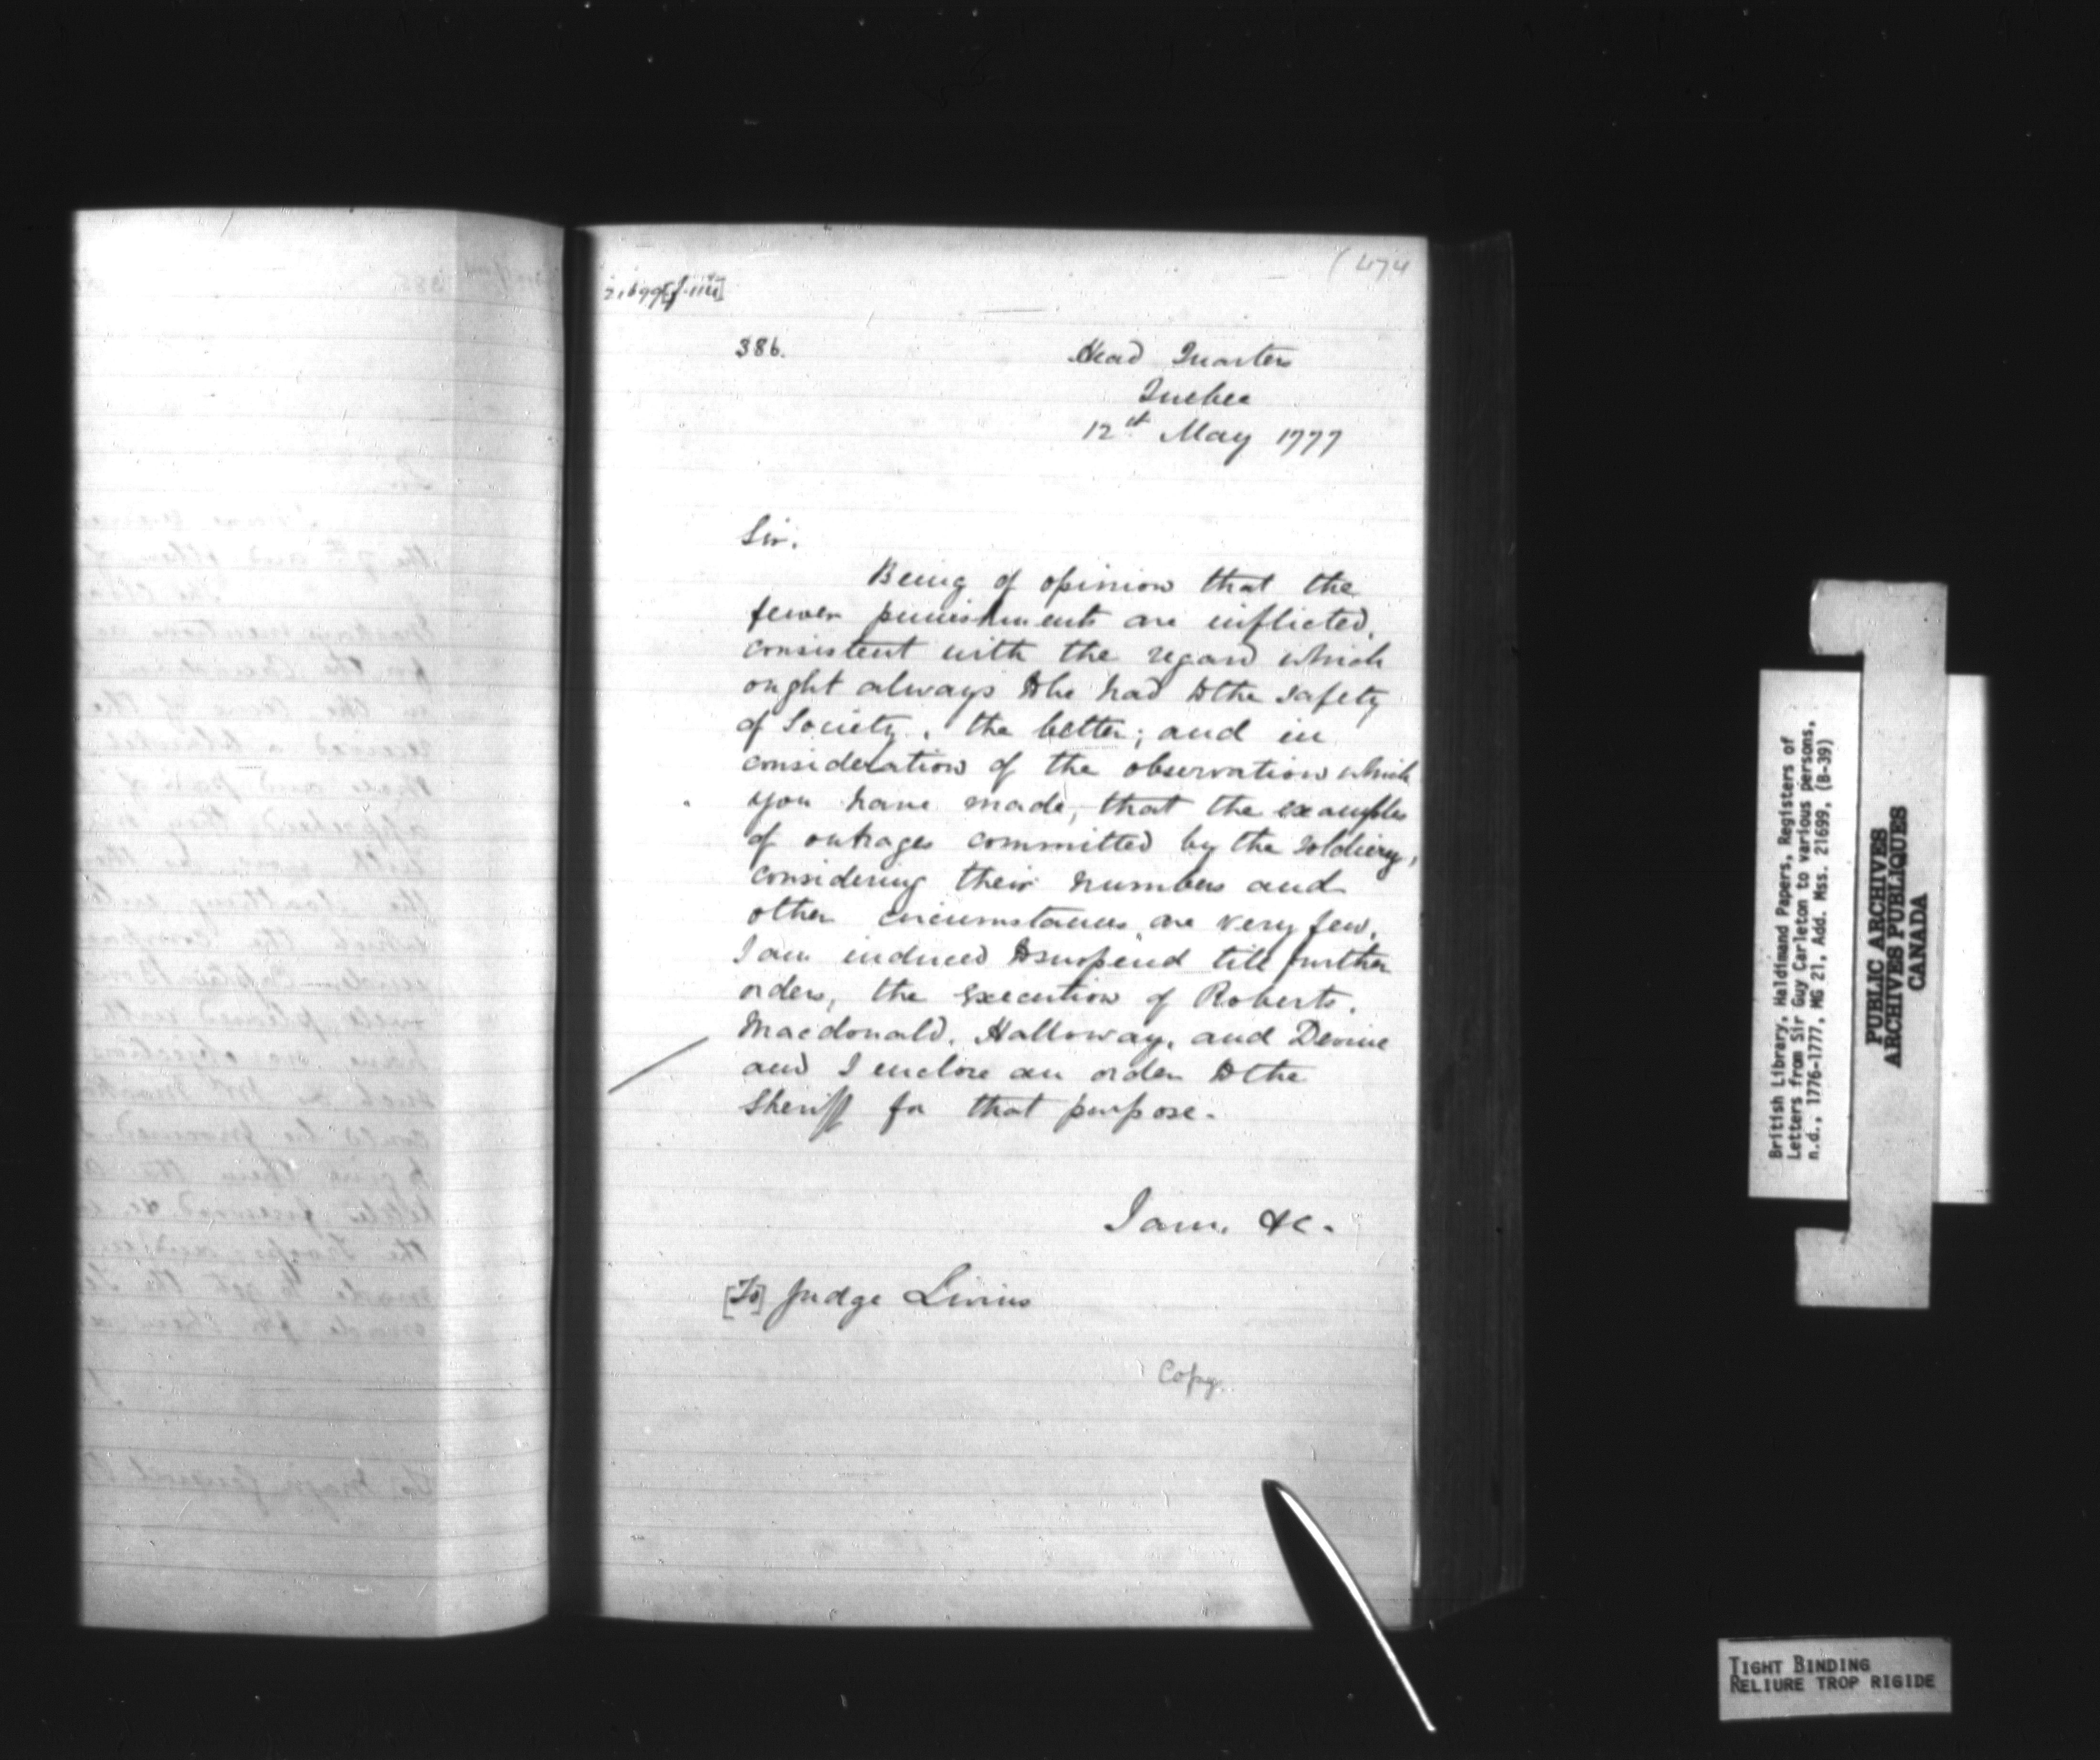 (474
21699
386.
Head Quarters
Quebec
12th May 1777
Sir.
Being of opinion that the
fewer punishments are inflicted,
consistent with the regard which
ought always to be had to the safety
of Society, the better; and in
consideration of the observation which
you have made, that the examples
of outrages committed by the soldiery,
considering their numbers and
other circumstances are very few,
I am induced to suspend till further
orders, the execution of Roberts,
Macdonald, Halloway, and Devine
and I enclose an order to the
Sheriff for that purpose.
I am, &c.
[To] Judge Livius
Copy.
British Library, Haldimand Papers, Registers of
Letters from Sir Guy Carleton to various persons,
n.d., 1776-1777, MG 21, Add. Mss. 21699, (B-39)
PUBLIC ARCHIVES
ARCHIVES PUBLIQUES
CANADA
TIGHT BINDING
RELIURE TROP RIGIDE